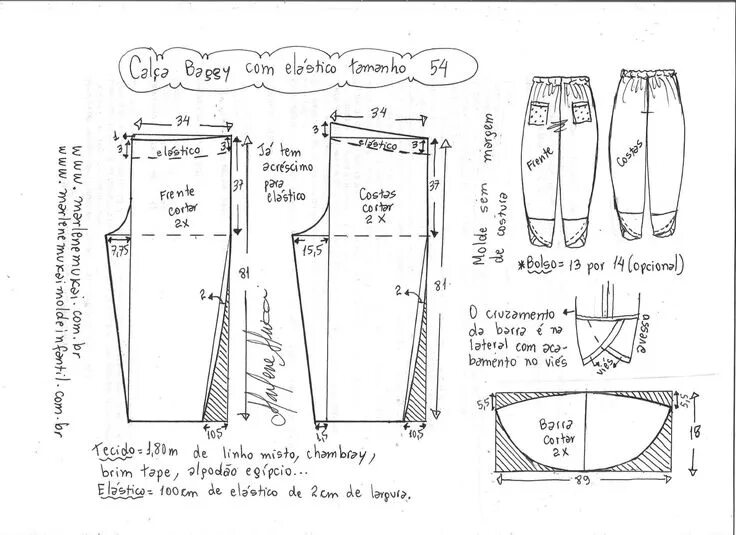 Calça Baggy com elástico tamanho 54
www.marlenemukai.com.br
www.marlenemukaimoldeinfantil.com.br
34
1
3
3
elástico
Frente
cortar
2x
37
7,75
81
2
10,5
Já tem
acréscimo
para
elástico
Marlene Mukai
34
3
3
elástico
Costas
cortar
2x
37
15,5
81
2
1,5
10,5
Molde sem margem
de costura
Frente
Costas
*Bolso= 13 por 14 (opcional)
O cruzamento
da barra é na
lateral com aca-
bamento no viés
viés
avesso
5,5
5,5
Barra
cortar
2x
18
89
Tecido= 1,80m de linho misto, chambray,
brim tape, algodão egípcio...
Elástico= 100cm de elástico de 2cm de largura.